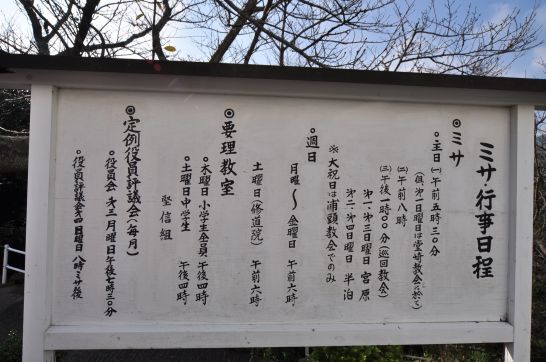 ミサ・行事日程
◎ミサ
◦主日(一)午前五時三〇分
(但、才一日曜日は堂崎教会に於て)
(二)午前八時
(三)午後一時〇〇分(巡回教会)
才一、才三日曜日 宮原
才二、才四日曜日 半泊
※大祝日は浦頭教会でのみ
◦週日
月曜〜金曜日 午前六時
土曜日(修道院) 午前六時
◎要理教室
◦木曜日小学生全員 午後四時
◦土曜日中学生 午後四時
堅信組
◎定例役員評議会(毎月)
◦役員会 才三月曜日午後七時三〇分
◦役員評議会才四日曜日 八時ミサ後